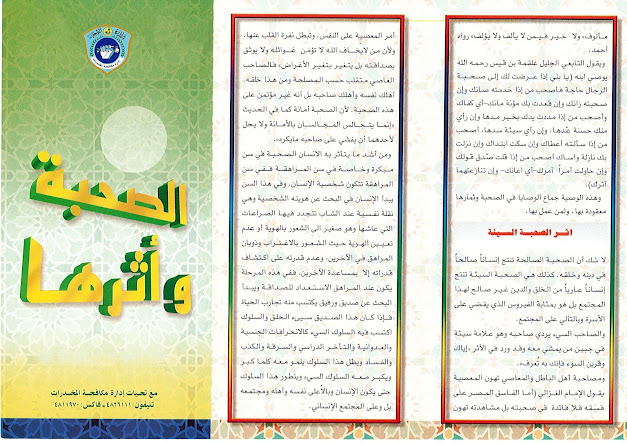 مألوف، ولا خير فيمن لا يألف ولا يؤلف» رواه
أحمد.
ويقول التابعي الجليل علقمة بن قيس رحمه الله
يوصي ابنه (يا بني إذا عرضت لك إلى صحبة
الرجال حاجة فاصحب من إذا خدمته صانك وإن
صحبته زانك وإن قعدت بك مؤنة مانك-أي كفاك
وأصحب من إذا مددت يدك بخير مدها وإن رأي
منك حسنة عدها، وإن رأي سيئة سدها، أصحب
من إذا سألته أعطاك وإن سكت ابتداك وإن نزلت
بك نازلة واساك أصحب من إذا قلت صدق قولك
وإن حاولت أمراً آمرك-أي أعانك- وإن تنازعتهما
آثرك).
وهذه الوصية جماع الوصايا في الصحبة وثمارها
معقودة بها، ولمن عمل بها.
اثر الصحبة السيئة
لا شك أن الصحبة الصالحة تنتج إنساناً صالحاً
في دينه وخلقه، كذلك هي الصحبة السيئة تنتج
إنساناً عارياً من الخلق والدين غير صالح لهذا
المجتمع بل هو بمثابة الفيروس الذي يقضي على
الأسرة وبالتالي على المجتمع.
والصاحب السيء يردي صاحبه وهو علامة سيئة
في جبين من يمشي معه وقد ورد في الأثر «إياك
وقرين السوء فإنك به تُعرف».
ومصاحبة أهل الباطل والمعاصي تهون المعصية
يقول الإمام الغزالي (أما الفاسق المصر على
فسقه فلا فائدة في صحبته بل مشاهدته تهون
أمر المعصية على النفس، وتبطل نفرة القلب عنها.
ولأن من لايخاف الله لا تؤمن غوائله ولا يوثق
بصداقته بل يتغير بتغير الأغراض)، فالصاحب
العاصي متقلب حسب المصلحة ومن هذا خلقه.
أهلك نفسه وأهلك صاحبه بل أنه غير مؤتمن على
هذه الصحبة. لأن الصحبة أمانة كما في الحديث
«إنما يتجالس المجالسان بالأمانة ولا يحل
لأحدهما أن يفشي على صاحبه مايكره».
ومن أشد ما يتأثر به الانسان الصحبة في سن
مبكرة وخاصة في سن المراهقة ففي سن
المراهقة تتكون شخصية الإنسان، وفي هذا السن
يبدأ الإنسان في البحث عن هويته الشخصية وهي
نقلة نفسية عند الشاب تتجدد فيها الصراعات
التي عاشها وهو صغير الى الشعور بالهوية أو عدم
تعيين الهوية حيث الشعور بالاغتراب وذوبان
المراهق في الآخرين، وعدم قدرته على اكتشاف
قدراته إلا بمساعدة الآخرين. ففي هذه المرحلة
يكون عند المراهق الاستعداد للصداقة ويبدأ
البحث عن صديق ورفيق يكتسب منه تجارب الحياة
فإذا كان هذا الصديق سيىء الخلق والسلوك
اكتسب فيه السلوك السيء كالانحرافات الجنسية
والعدوانية والتأخر الدراسي والسرقة والكذب
والفساد ويظل هذا السلوك ينمو معه كلما كبر
ويكبر معه السلوك السيء ويتطور هذا السلوك
حتى يكون الإنسان وبالاعلى نفسه وأهله ومجتمعه
بل وعلى المجتمع الإنساني.
الصحبة
وأثرها
مع تحيات إدارة مكافحة المخدرات
تليفون: ٤٨٣٦١١١ - فاكس: ٤٨١١٩٧٠